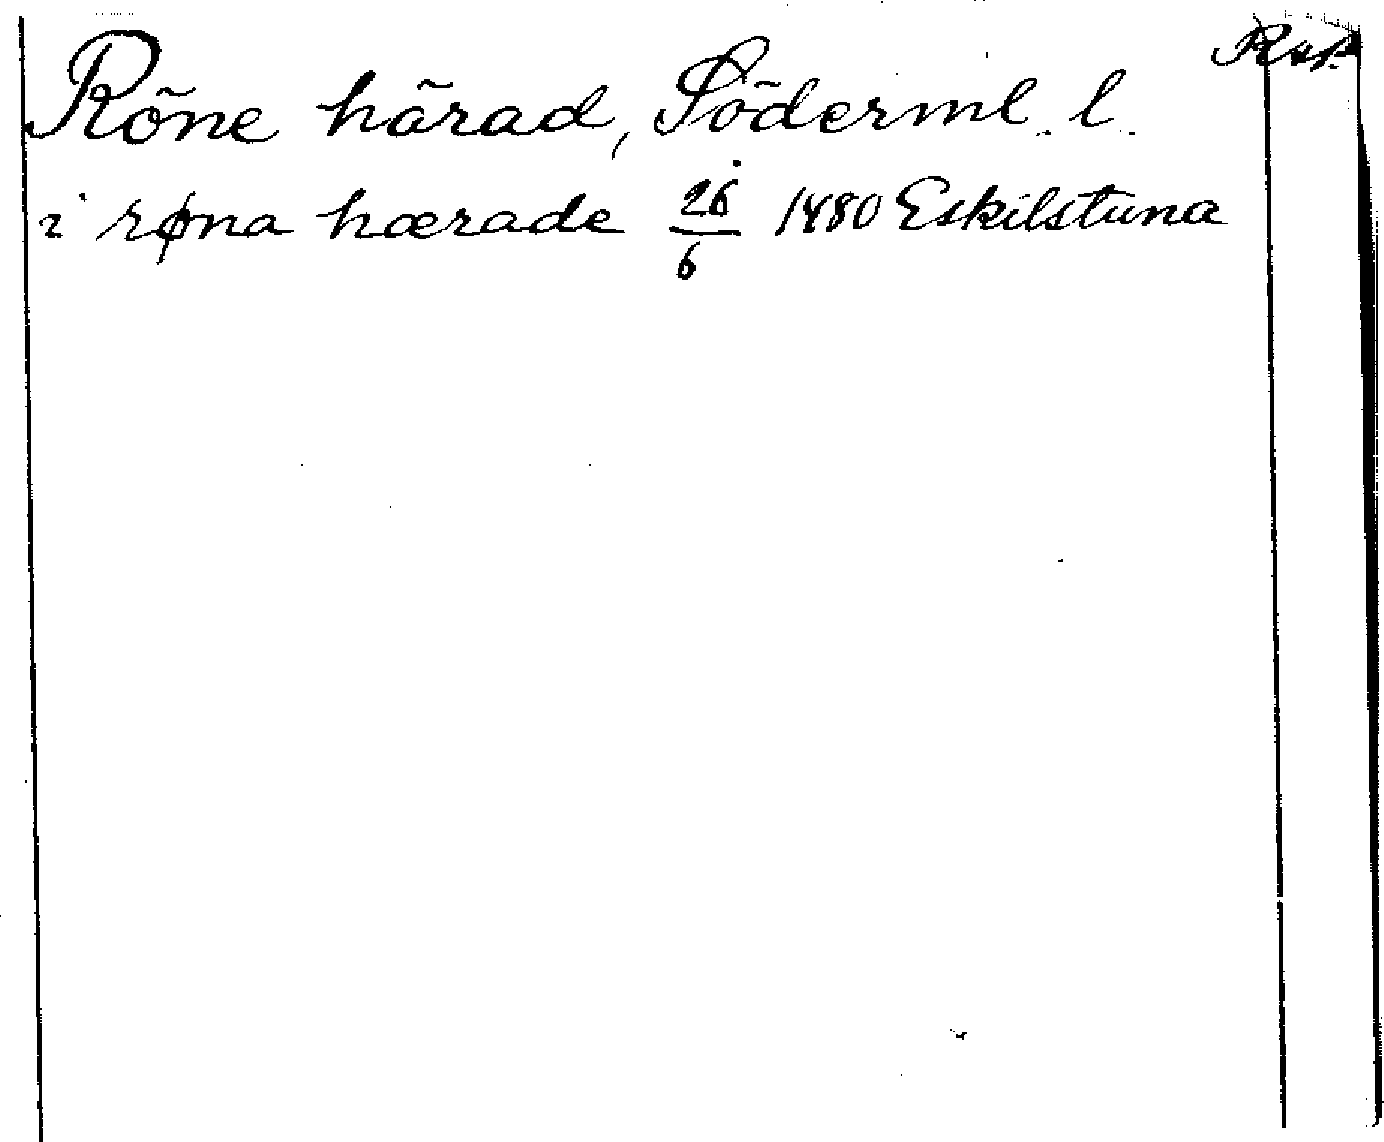 Röne härad, Söderml. l.
i røna hærade 26/6 1480 Eskilstuna